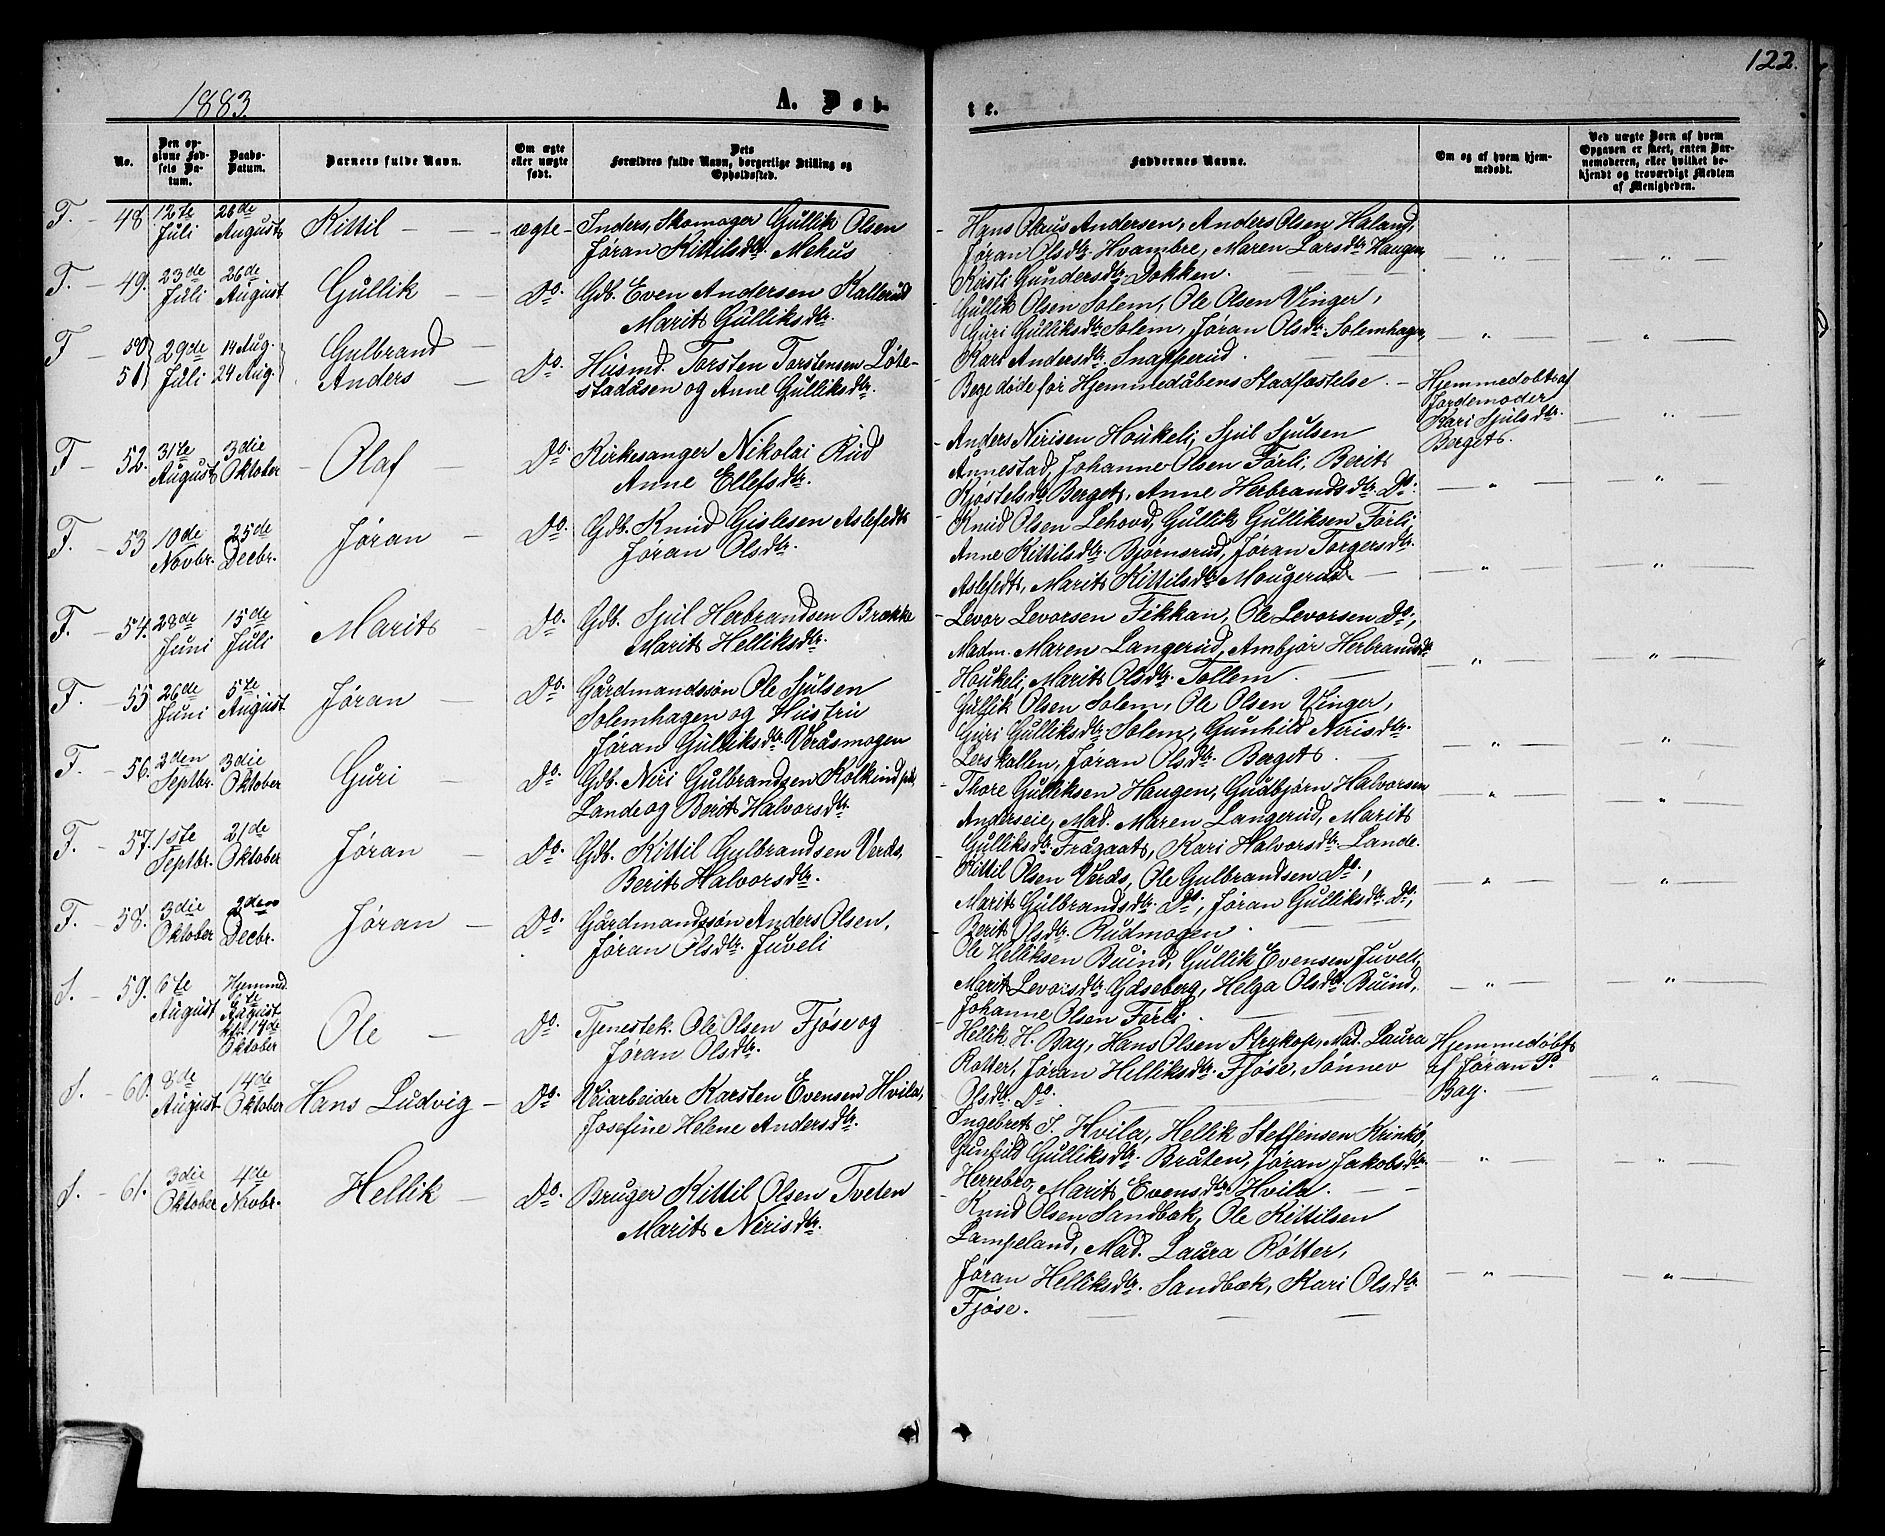 122.
1883.
A. Døb-
te.
No.
Den opgivne Fødsels Datum.
Daabs-Datum.
Barnets fulde Navn.
Om ægte eller uægte født.
Dets Forældres fulde Navn, borgerlige Stilling og Opholdssted.
Faddernes Navne.
Om og af hvem hjemmedøbt.
Ved uægte Børn af hvem Opgaven er skeet, enten Barnemoderen, eller hvilket bekjendt og troværdigt Medlem af Menigheden.
F. - 48. 12te Juli 26de August Kittil - - ægte -
Inders, Skomager Gullik Olsen
Jøran Kittilsdtr. Mehus
Hans Olaus Andersen, Anders Olsen Haland,
Jøran Olsdtr. Hvambre, Maren Larsdtr. Haugen,
Kirsti Gundersdtr. Dokken.
F. - 49. 23de Juli 26de August Gullik - - Do.
Gdb. Even Andersen Kallerud
Marit Gulliksdtr.
Gullik Olsen Solem, Ole Olsen Vinger,
Guri Gulliksdtr. Solem, Jøran Olsdtr. Solemhagen,
Kari Andersdtr. Snapperud.
F - 50 51 29de Juli 14 Aug. 24 Aug. Gulbrand - Anders - Do.
Husmd. Torsten Torstensen Løte-
stadåsen og Anne Gulliksdtr.
Bege døde før Hjemmedåbens Stadfæstelse. -
Hjemmedøbt af
Jordemoder
Kari Sjulsdtr.
Berget.
F - 52. 31te August 3die Oktober - Olaf - Do.
Kirkesanger Nikolai Rud
Anne Ellefsdtr.
Anders Nirisen Houkeli, Sjul Sjulsen
Annestad, Johanne Olsen Førli, Berit
Kjøstelsdtr. Berget, Anne Herbrandsdtr. Do.
F. - 53 10de Novbr. 25de Decbr. Jøran - Do.
Gdb. Knud Gislesen Aslefedt
Jøran Olsdtr.
Knud Olsen Lehovd, Gullik Gulliksen Førli,
Anne Kittilsdtr. Bjørnsrud, Jøran Torgersdtr.
Aslefedt, Marit Kittilsdtr. Mougerud
F. - 54. 28de Juni 15de Juli Marit - Do.
Gdb. Sjul Herbrandsen Brække
Marit Helliksdtr.
Levor Levorsen Fikkan, Ole Levorsen Do.,
Madm. Maren Langerud, Ambjør Herbrandsdtr.
Houkeli, Marit Olsdtr. Tollem.
F. - 55 26de Juni 5te August Jøran - Do.
Gårdmandssøn Ole Sjulsen
Solemhagen og Hustru
Jøran Gulliksdtr. Veråsmogen
Gullik Olsen Solem, Ole Olsen Vinger,
Guri Gulliksdtr. Solem, Gunhild Nerisdtr.
Lerskallen, Jøran Olsdtr. Berget.
F. - 56. 2den Septbr. 3die Oktober Guri - Do.
Gdb. Niri Gulbrandsen Kolkind
Lande og Berit Halvorsdtr.
Thore Gulliksen Haugen, Gudbjørn Halvorsen
Anderseie, Mad. Maren Langerud, Marit
Gulliksdtr. Frågaat, Kari Halvorsdtr. Lande.
F. - 57. 1ste Septbr. 21de Oktober Jøran - Do.
Gdb. Kittil Gulbrandsen Verås,
Berit Halvorsdtr.
Kittil Olsen Verås, Ole Gulbrandsen Do.,
Marit Gulbrandsdtr. Do., Jøran Gulliksdtr. Do.,
Berit Olsdtr. Rudmogen.
F. - 58. 3die Oktober 2den Decbr. Jøran - Do.
Gårdmandssøn Anders Olsen,
Jøran Olsdtr. Juveli
Ole Helliksen Buind, Gullik Evensen Juveli,
Marit Levorsdtr. Gåseberg, Helga Olsdtr. Buind,
Johanne Olsen Førli.
S. - 59. 6te August Hjemmed. 6te August 14de Oktober Ole - Do.
Tjenestek. Ole Olsen Fjøse og
Jøran Olsdtr.
Hellik H. Bay, Hans Olsen Strykop, Mad. Laura
Rotter, Jøran Helliksdtr. Fjøse, Sønnev
Olsdtr. Do.
Hjemmedøbt
af Jøran P.
Bay.
S. - 60. 8de August 14de Oktober Hans Ludvig - Do.
Veiarbeider Karsten Evensen Hvila,
Josefine Helene Andersdtr.
Ingebret S. Hvila, Hellik Steffensen Krinkø,
Gunhild Gulliksdtr. Bråten, Jøran Jakobsdtr.
Herrebro, Marit Evensdtr. Hvila.
S. - 61. 3die Oktober 4de Novbr. Hellik - Do.
Bruger Kittil Olsen Tveten
Marit Nerisdtr.
Knud Olsen Sandbæk, Ole Kittilsen
Lampeland, Mad. Laura Rotter,
Jøran Helliksdtr. Sandbæk, Kari Olsdtr.
Fjøse.